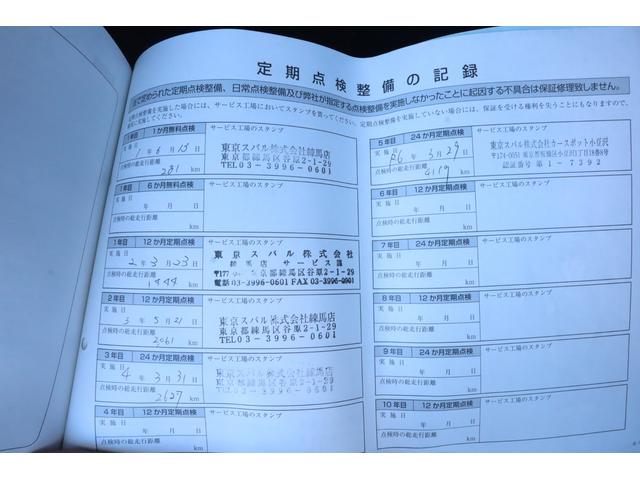 定期点検整備の記録
で定められた定期点検整備、日常点検整備及び弊社が指定する点検整備を実施しなかったことに起因する不具合は保証修理致しません。
定期点検整備を実施した場合には、サービス工場においてスタンプを貰ってください。
定期点検整備を実施していない場合には、保証を受ける権利を失うことにもなりますので、
実に実施してください。
1か月無料点検
サービス工場のスタンプ
実施日
1年6月15日
点検時の総走行距離
281 km
東京スバル株式会社練馬店
東京都練馬区谷原2-1-29
TEL03-3996-0601
1年目 6か月無料点検
サービス工場のスタンプ
実施日
年 月 日
点検時の総走行距離
km
1年目 12か月定期点検
サービス工場のスタンプ
実施日
2年3月23日
点検時の総走行距離
1444 km
東京スバル株式会社
練馬店 サービス課
〒177 東京都練馬区谷原2-1-29
電話03-3996-0601 FAX03-3996-0901
2年目 12か月定期点検
サービス工場のスタンプ
実施日
3年5月21日
点検時の総走行距離
2061 km
東京スバル株式会社練馬店
東京都練馬区谷原2-1-29
TEL03-3996-0601
3年目 24か月定期点検
サービス工場のスタンプ
実施日
4年3月31日
点検時の総走行距離
2627 km
東京スバル株式会社練馬店
東京都練馬区谷原2-1-29
TEL03-3996-0601
4年目 12か月定期点検
サービス工場のスタンプ
実施日
年 月 日
5年目 24か月定期点検
サービス工場のスタンプ
実施日
R6年3月29日
点検時の総走行距離
4119 km
東京スバル株式会社カースポット小豆沢
〒174-0051 東京都板橋区小豆沢1丁目18番8号
認証番号 第1-7392
6年目 12か月定期点検
サービス工場のスタンプ
実施日
年 月 日
点検時の総走行距離
km
7年目 24か月定期点検
サービス工場のスタンプ
実施日
年 月 日
点検時の総走行距離
km
8年目 12か月定期点検
サービス工場のスタンプ
実施日
年 月 日
点検時の総走行距離
km
9年目 24か月定期点検
サービス工場のスタンプ
実施日
年 月 日
点検時の総走行距離
km
10年目 12か月定期点検
サービス工場のスタンプ
実施日
年 月 日
点検時の総走行距離
km